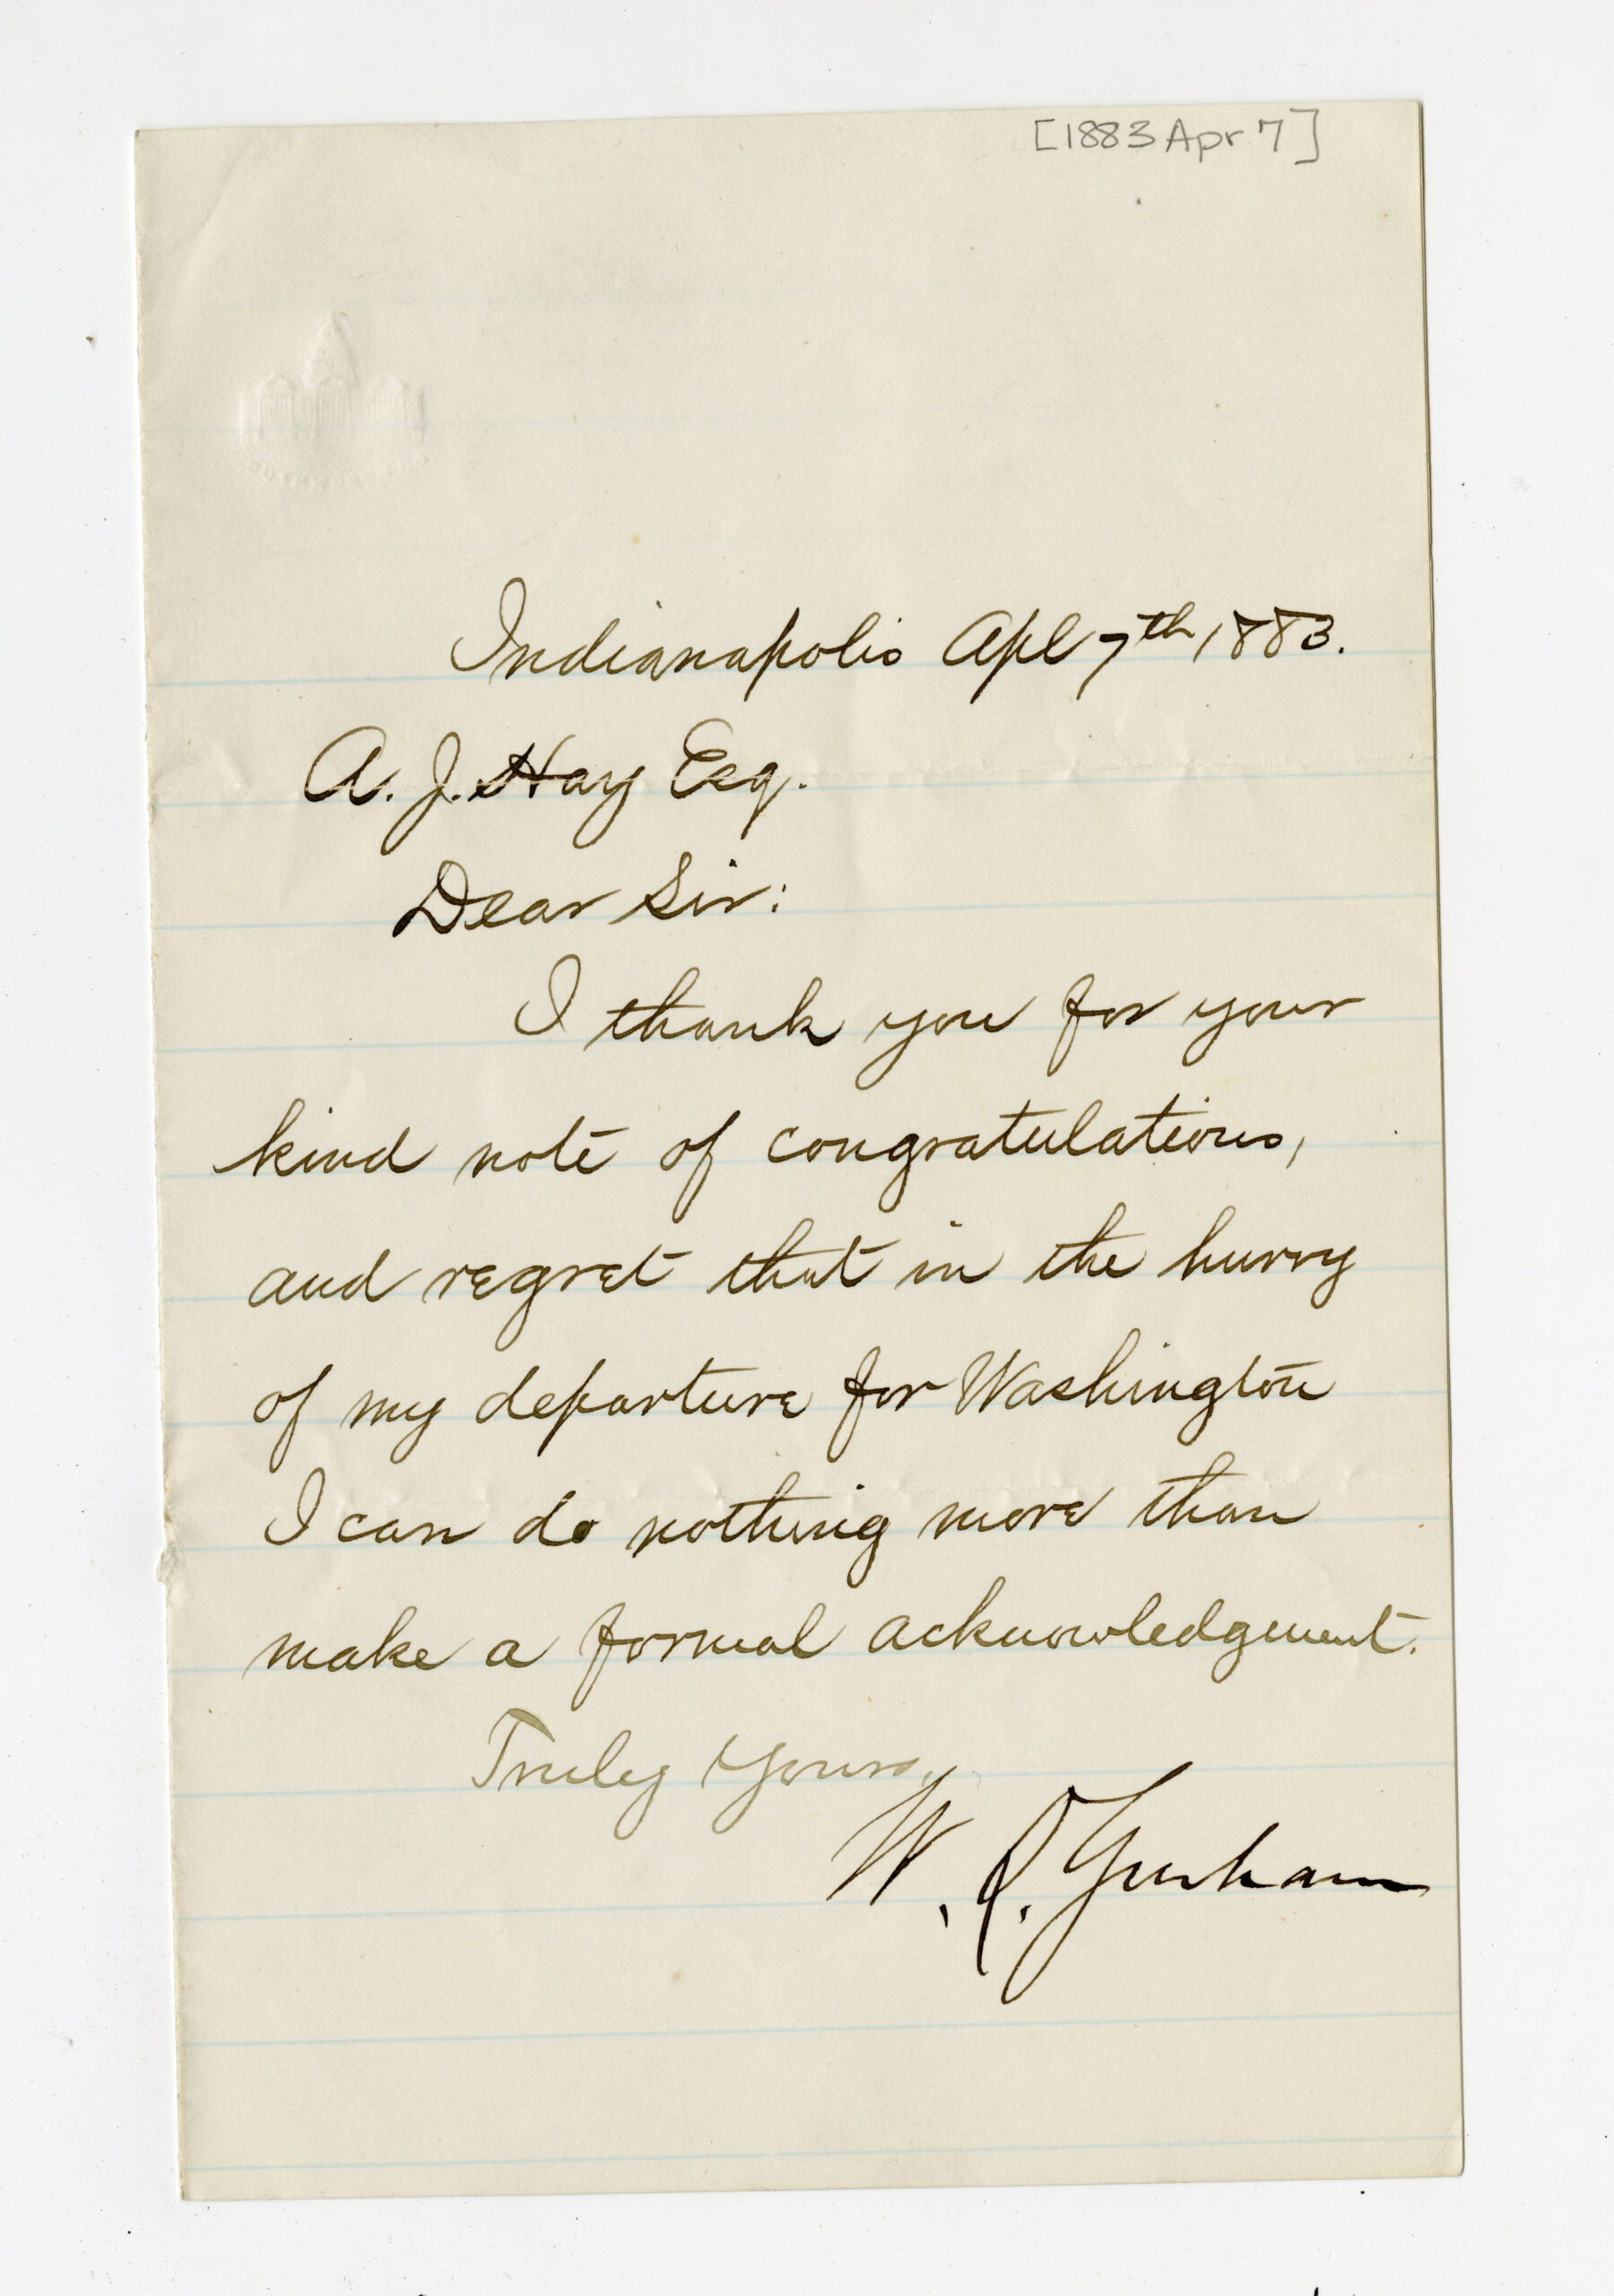 [1883 Apr 7]
Indianapolis Apl 7th 1883.
A. J. Hay Esq.
Dear Sir:
I thank you for your
kind note of congratulations,
and regret that in the hurry
of my departure for Washington
I can do nothing more than
make a formal acknowledgment.
Truly Yours,
W. Q. Gresham